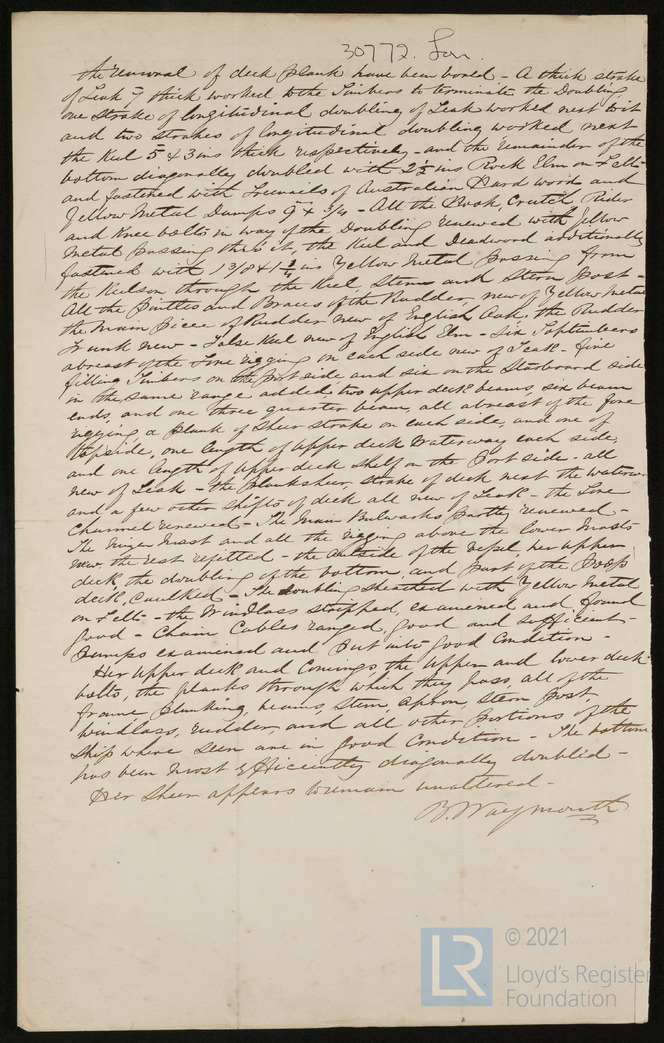 30772. Lon.
the removal of deck plank have been bored - A thick strake
of Teak 7 thick worked to the Timbers to terminate the Doubling,
one Strake of longitudinal doubling of Teak worked next to it
and two strakes of longitudinal doubling worked next
the Keel 5 & 3 ins thick respectively - and the remainder of the
bottom diagonally doubled with 2½ ins Rock Elm on Felt
and fastened with Treenails of Australian Hard wood and
Yellow Metal Dumps & ¾ - All the Hook, Crutch, Rider
and Knee bolts in way of the Doubling renewed with Yellow
Metal passing thro' it, the Keel and Deadwood additionally
fastened with 1 3/8 & 1¼ ins Yellow Metal passing from
the Keelson through the Keel, Stem and Stern Post -
All the Pintles and Braces of the Rudder, new of Yellow Metal
the Main Piece of Rudder new of English Oak, the Rudder
Trunk new - False Keel new of English Elm - Six Toptimbers
abreast of the Fore rigging on each side new of Teak - five
filling Timbers on the Port side and six on the Starboard side
in the same range added, two upper deck beams, six beam
ends, and one three quarter beam, all abreast of the fore
rigging a plank of Sheer strake on each side, and one of
Topside, one length of upper deck Waterway each side,
and one length of upper deck shelf on the Port side - all
new of Teak - the planksheer, strake of deck next the waterway
and a few other shifts of deck all new of Teak - the Fore
Channel renewed - The Main Bulwarks partly renewed -
The Mizen Mast and all the rigging above the lower Masts
new, the rest refitted - the outside of the vessel, her upper
deck, the doubling of the bottom, and part of the Poop
deck, caulked - The doubling sheathed with Yellow Metal
on Felt - the Windlass stripped, examined and found
good - Chain Cables ranged, good and sufficient -
Pumps examined and put into good Condition -
Her upper deck and Comings, the upper and lower deck
bolts, the planks through which they pass, all of the
frame planking, beams, stem, apron, stern post,
windlass, rudder, and all other portions of the
Ship where seen are in good Condition - The bottom
has been most efficiently diagonally doubled -
Her Sheer appears to remain unaltered -
B. Waymouth
LR
© 2021
Lloyd's Register
Foundation